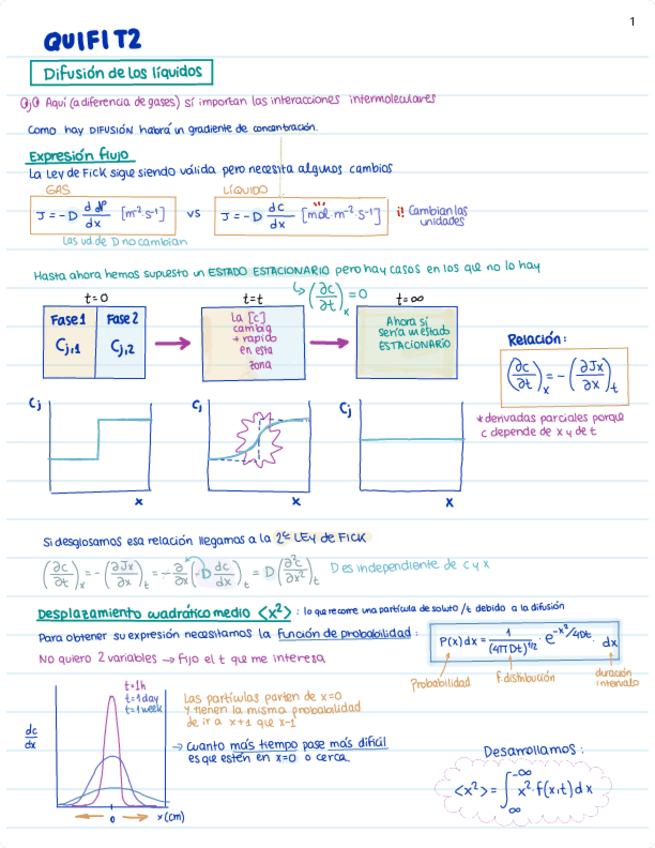 1
QUIFI T2
Difusión de los líquidos
Aquí (a diferencia de gases) sí importan las interacciones intermoleculares
Como hay DIFUSIÓN habrá un gradiente de concentración.
Expresión flujo
La Ley de Fick sigue siendo válida pero necesita algunos cambios
GAS
LÍQUIDO
J = -D d𝒩/dx [m²·s⁻¹] vs J = -D dc/dx [mol·m⁻²·s⁻¹] ¡! Cambian las unidades
Las ud. de D no cambian
Hasta ahora hemos supuesto un ESTADO ESTACIONARIO pero hay casos en los que no lo hay
(∂c/∂t)x = 0
t=0 t=t t=∞
Fase 1 Fase 2
Cj,1 Cj,2
La [c]
cambia
+ rapido
en esta
zona
Ahora sí
sería un estado
ESTACIONARIO
Relación:
(∂c/∂t)x = -(∂Jx/∂x)t
* derivadas parciales porque
c depende de x y de t
Cj Cj Cj
x x x
Si desglosamos esa relación llegamos a la 2ª LEY de FICK
(∂c/∂t)x = -(∂Jx/∂x)t = -∂/∂x(-D dc/dx)t = D(∂²c/∂x²)t D es independiente de c y x
Desplazamiento cuadrático medio <x²> : lo que recorre una partícula de soluto /t debido a la difusión
Para obtener su expresión necesitamos la función de probabilidad :
P(x)dx = 1/(4πDt)^1/2 · e^-x²/4Dt · dx
No quiero 2 variables → fijo el t que me interesa
Probabilidad f. distribución duración intervalo
t=1h
t=1day
t=1week
dc/dx
0 x(cm)
Las partículas parten de x=0
y tienen la misma probabilidad
de ir a x+1 que x-1
→ Cuanto más tiempo pase más difícil
es que estén en x=0 o cerca.
Desarrollamos :
<x²> = ∫ -∞ ∞ x²·f(x,t)dx